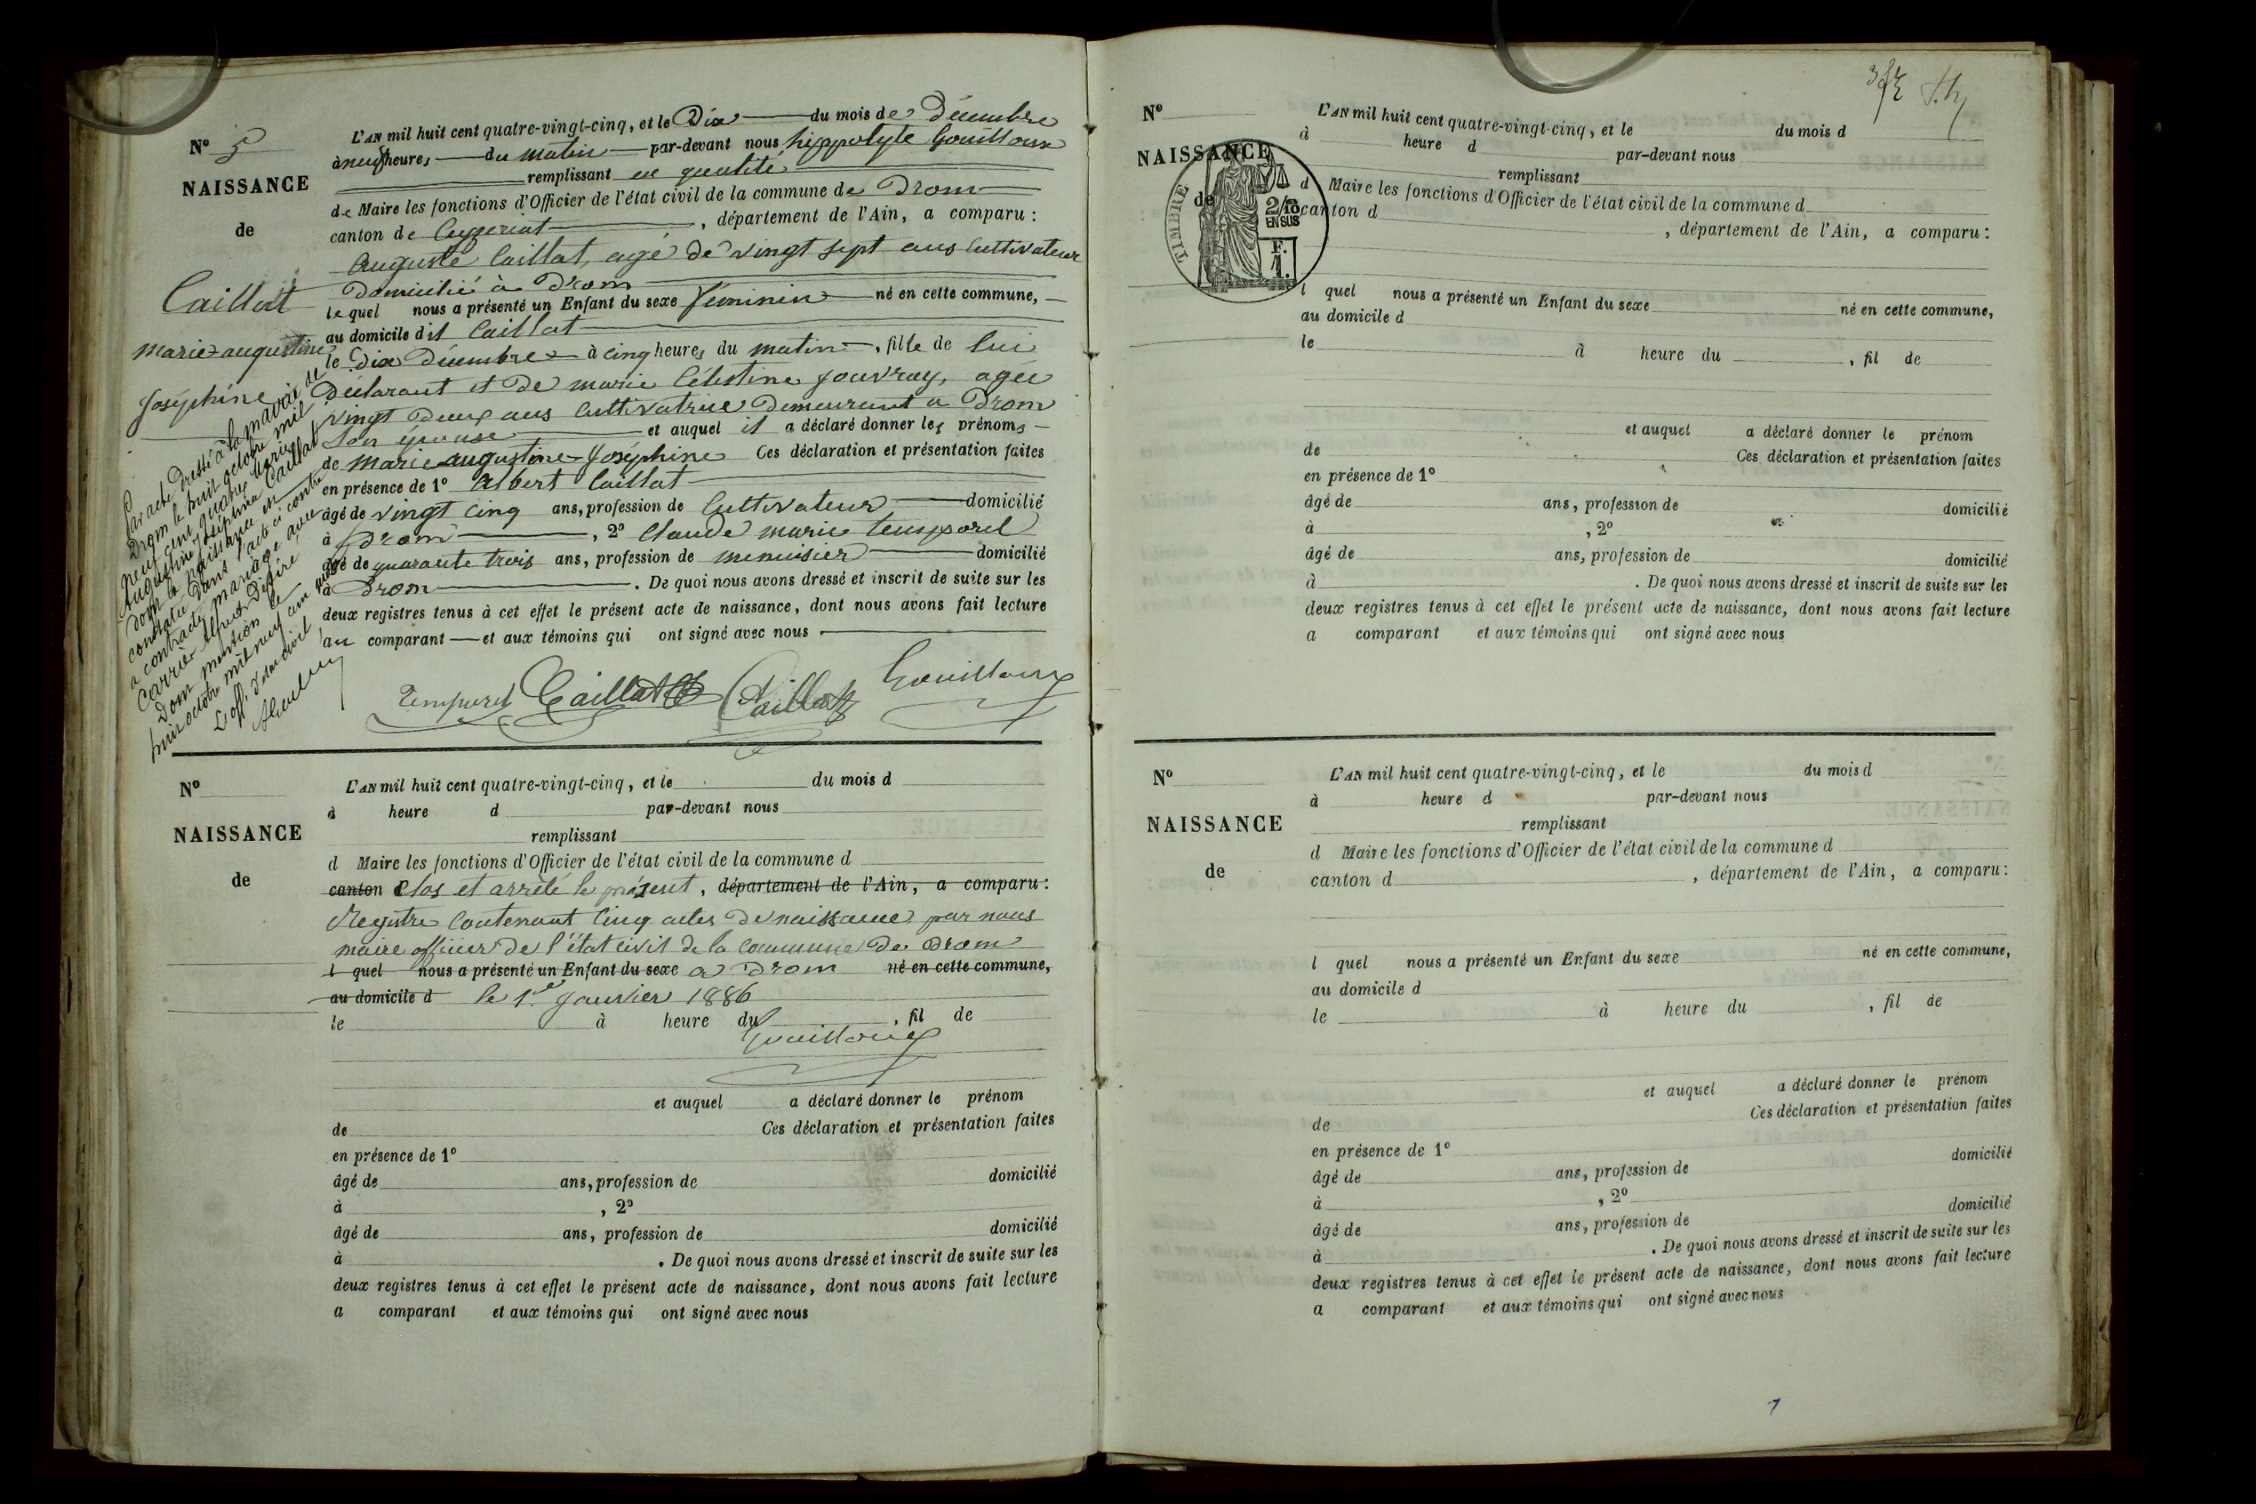 N° 5
NAISSANCE
de
Caillat
marie-augustine
Joséphine
L'AN mil huit cent quatre-vingt-cinq, et le Dix du mois de Décembre
à neuf heures du matin par-devant nous hippolyte Gouilloux
remplissant en qualité
de Maire les fonctions d'Officier de l'état civil de la commune de Drom
canton de Ceyzeriat, département de l'Ain, a comparu :
Auguste Caillat, agé de vingt sept ans Cultivateur
Domicilié à Drom
lequel nous a présenté un Enfant du sexe féminin né en cette commune,
au domicile dit Caillat
le Dix Décembre à cinq heures du matin, fille de lui
Déclarant et de marie Célestine Jouvray, agée
vingt Deux ans Cultivatrice Demeurant a Drom
Son épouse et auquel il a déclaré donner les prénoms
de marie augustine Joséphine Ces déclaration et présentation faites
en présence de 1° Albert Caillat
âgé de vingt cinq ans, profession de Cultivateur domicilié
à Drom, 2° Claude marie temporel
âgé de quarante trois ans, profession de menuisier domicilié
à Drom. De quoi nous avons dressé et inscrit de suite sur les
deux registres tenus à cet effet le présent acte de naissance, dont nous avons fait lecture
au comparant et aux témoins qui ont signé avec nous
Par acte dressé à la mairie de
Drom le huit octobre mil
neuf cent quatre Marie
Augustine Joséphine Caillat
dont la naissance est
constatée dans l'acte ci contre
a contracté mariage avec
Carrier Alfred Désiré
Dont mention le
huit octobre mil neuf cent quatre
L'off. d'état civil
Temporel Caillat Caillat Gouilloux
N°
NAISSANCE
de
L'AN mil huit cent quatre-vingt-cinq, et le du mois d
à heure d par-devant nous
remplissant
d Maire les fonctions d'Officier de l'état civil de la commune d
canton Clos et arrêté le présent, département de l'Ain, a comparu :
Registre Contenant Cinq actes de naissance par nous
maire officier de l'état civil de la commune de Drom
l quel nous a présenté un Enfant du sexe a Drom né en cette commune,
au domicile d le 1er Janvier 1886
le à heure du, fil de
Gouilloux
et auquel a déclaré donner le prénom
de Ces déclaration et présentation faites
en présence de 1°
âgé de ans, profession de domicilié
à, 2°
âgé de ans, profession de domicilié
à. De quoi nous avons dressé et inscrit de suite sur les
deux registres tenus à cet effet le présent acte de naissance, dont nous avons fait lecture
a comparant et aux témoins qui ont signé avec nous
N°
NAISSANCE
de
TIMBRE
2/10
EN SUS
F.
1.
L'AN mil huit cent quatre-vingt-cinq, et le du mois d
à heure d par-devant nous
remplissant
d Maire les fonctions d'Officier de l'état civil de la commune d
canton d, département de l'Ain, a comparu :
l quel nous a présenté un Enfant du sexe né en cette commune,
au domicile d
le à heure du, fil de
et auquel a déclaré donner le prénom
de Ces déclaration et présentation faites
en présence de 1°
âgé de ans, profession de domicilié
à, 2°
âgé de ans, profession de domicilié
à. De quoi nous avons dressé et inscrit de suite sur les
deux registres tenus à cet effet le présent acte de naissance, dont nous avons fait lecture
a comparant et aux témoins qui ont signé avec nous
N°
NAISSANCE
de
L'AN mil huit cent quatre-vingt-cinq, et le du mois d
à heure d par-devant nous
remplissant
d Maire les fonctions d'Officier de l'état civil de la commune d
canton d, département de l'Ain, a comparu :
l quel nous a présenté un Enfant du sexe né en cette commune,
au domicile d
le à heure du, fil de
et auquel a déclaré donner le prénom
de Ces déclaration et présentation faites
en présence de 1°
âgé de ans, profession de domicilié
à, 2°
âgé de ans, profession de domicilié
à. De quoi nous avons dressé et inscrit de suite sur les
deux registres tenus à cet effet le présent acte de naissance, dont nous avons fait lecture
a comparant et aux témoins qui ont signé avec nous